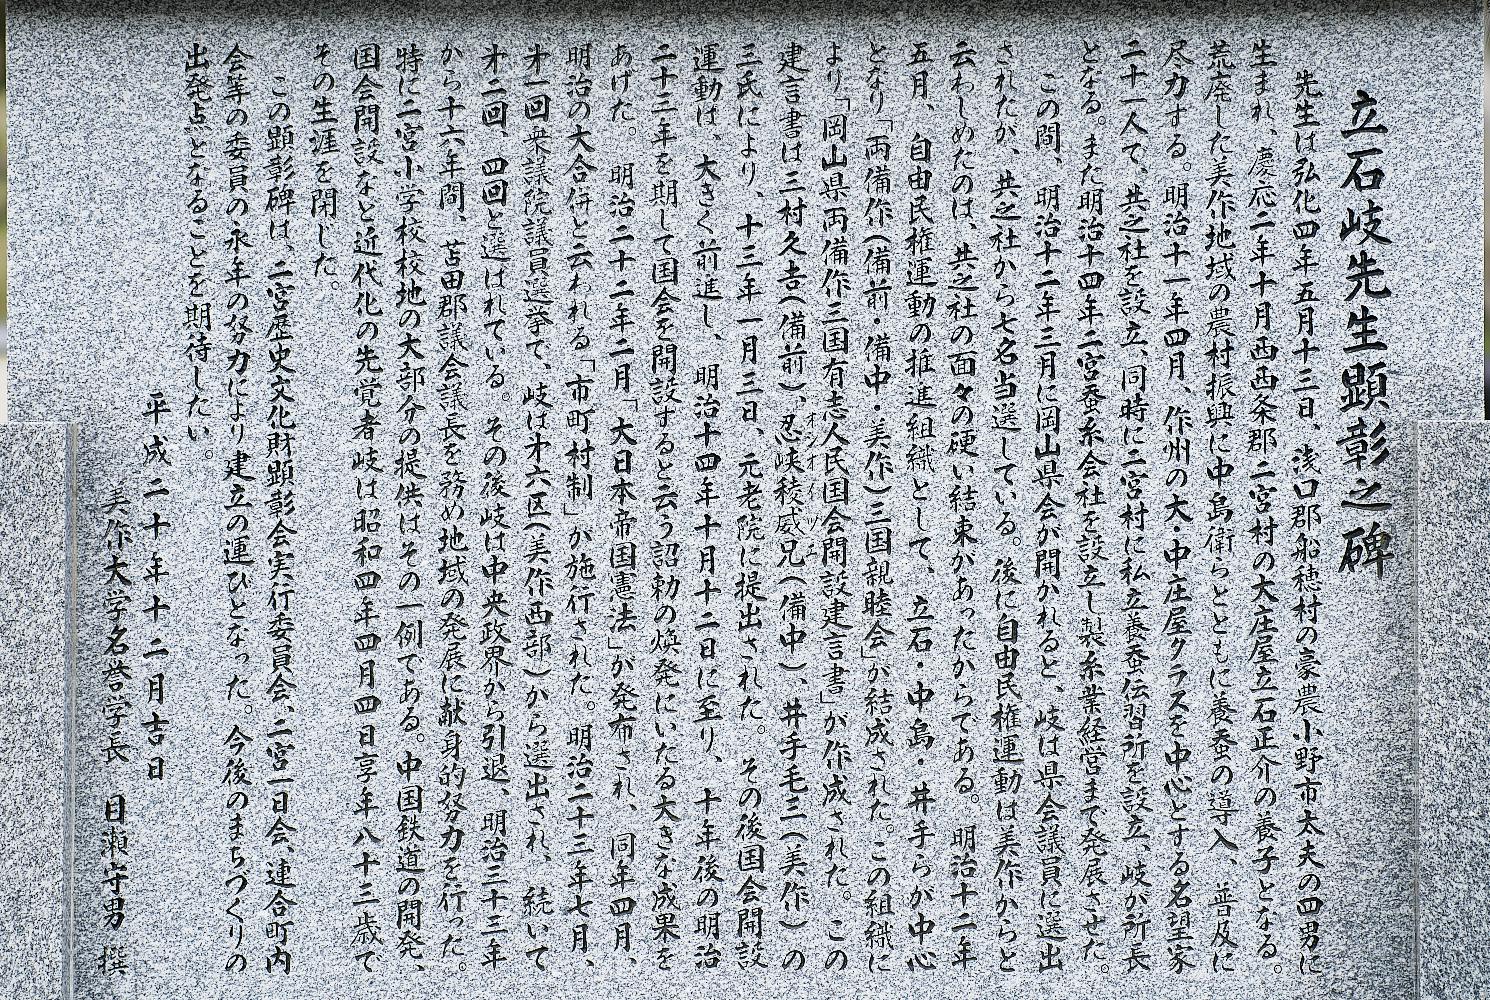 立石岐先生顕彰之碑
先生は弘化四年五月十三日、浅口郡船穂村の豪農小野市太夫の四男に
生まれ、慶応二年十月西西条郡二宮村の大庄屋立石正介の養子となる。
荒廃した美作地域の農村振興に中島衛らとともに養蚕の導入、普及に
尽力する。明治十一年四月、作州の大・中庄屋クラスを中心とする名望家
二十一人で、共之社を設立、同時に二宮村に私立養蚕伝習所を設立、岐が所長
となる。また明治十四年二宮蚕糸会社を設立し製糸業経営まで発展させた。
この間、明治十二年三月に岡山県会が開かれると、岐は県会議員に選出
されたが、共之社から七名当選している。後に自由民権運動は美作からと
云わしめたのは、共之社の面々の硬い結束があったからである。明治十二年
五月、自由民権運動の推進組織として、立石・中島・井手らが中心
となり「両備作(備前・備中・美作)三国親睦会」が結成された。この組織に
より「岡山県両備作三国有志人民国会開設建言書」が作成された。この
建言書は三村久吉(備前)、忍峡稜威兄(備中)、井手毛三(美作)の
オシオイツエ
三氏により、十三年一月三日、元老院に提出された。その後国会開設
運動は、大きく前進し、明治十四年十月十二日に至り、十年後の明治
二十三年を期して国会を開設すると云う詔勅の煥発にいたる大きな成果を
あげた。明治二十二年二月「大日本帝国憲法」が発布され、同年四月、
明治の大合併と云われる「市町村制」が施行された。明治二十三年七月、
才一回衆議院議員選挙で、岐は才六区(美作西部)から選出され、続いて
才二回、四回と選ばれている。その後岐は中央政界から引退、明治三十三年
から十六年間、苫田郡議会議長を務め地域の発展に献身的努力を行った。
特に二宮小学校校地の大部分の提供はその一例である。中国鉄道の開発、
国会開設など近代化の先覚者岐は昭和四年四月四日享年八十三歳で
その生涯を閉じた。
この顕彰碑は、二宮歴史文化財顕彰会実行委員会、二宮一日会、連合町内
会等の委員の永年の努力により建立の運びとなった。今後のまちづくりの
出発点となることを期待したい。
平成二十年十二月吉日
美作大学名誉学長 目瀬守男 撰